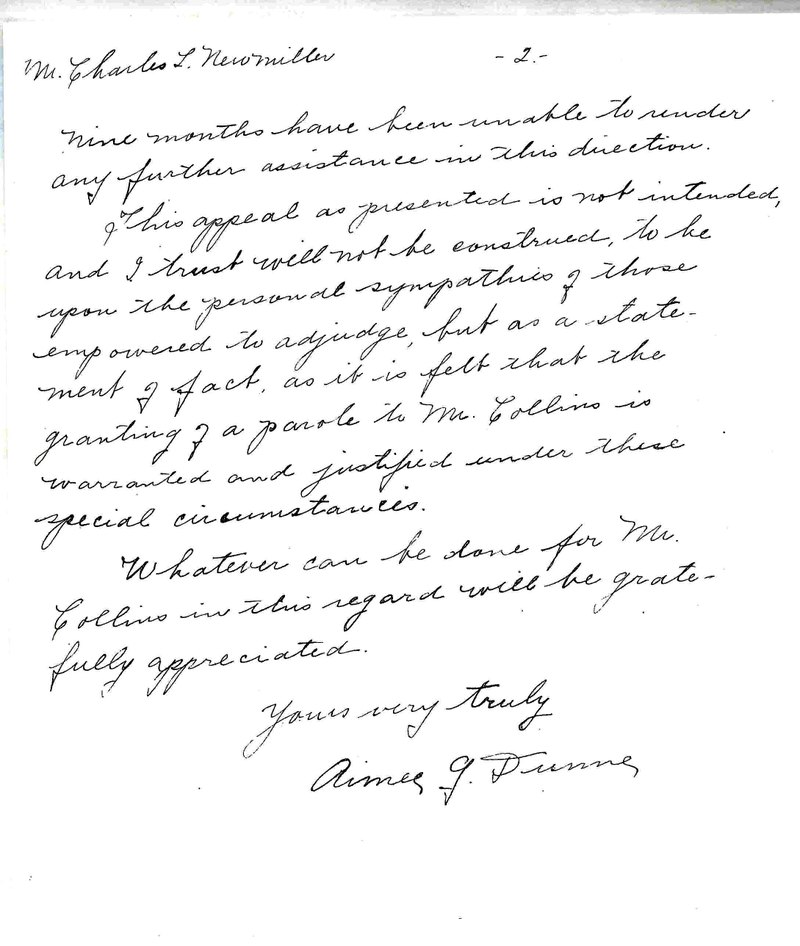 Mr. Charles L. Newmiller -2.-
nine months have been unable to render
any further assistance in this direction.
This appeal as presented is not intended,
and I trust will not be construed, to be
upon the personal sympathies of those
empowered to adjudge, but as a state-
ment of fact, as it is felt that the
granting of a parole to Mr. Collins is
warranted and justified under these
special circumstances.
Whatever can be done for Mr.
Collins in this regard will be grate-
fully appreciated.
Yours very truly
Aimee G. Dunne